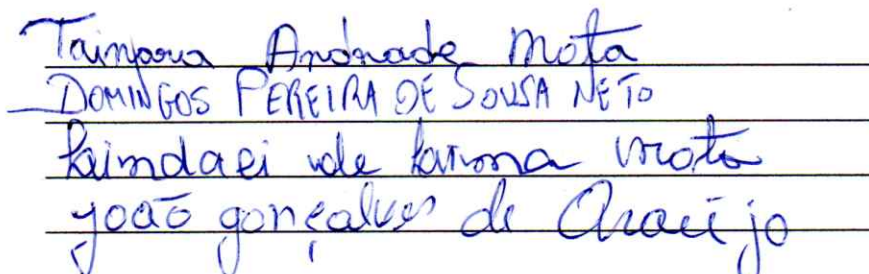 Tainara Andrade Mota
DOMINGOS PEREIRA DE SOUSA NETO
de Mota
João Gonçalves de Araújo